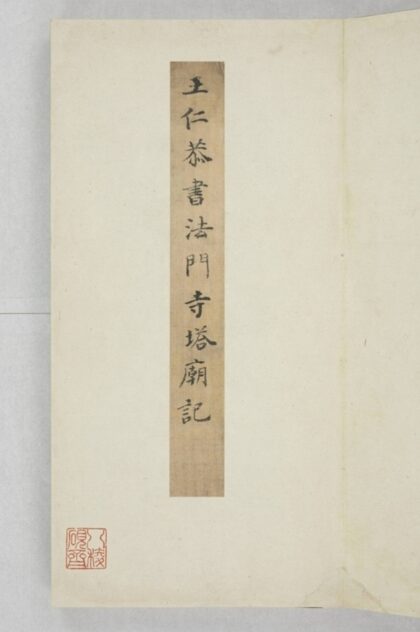 王仁恭書法門寺塔廟記